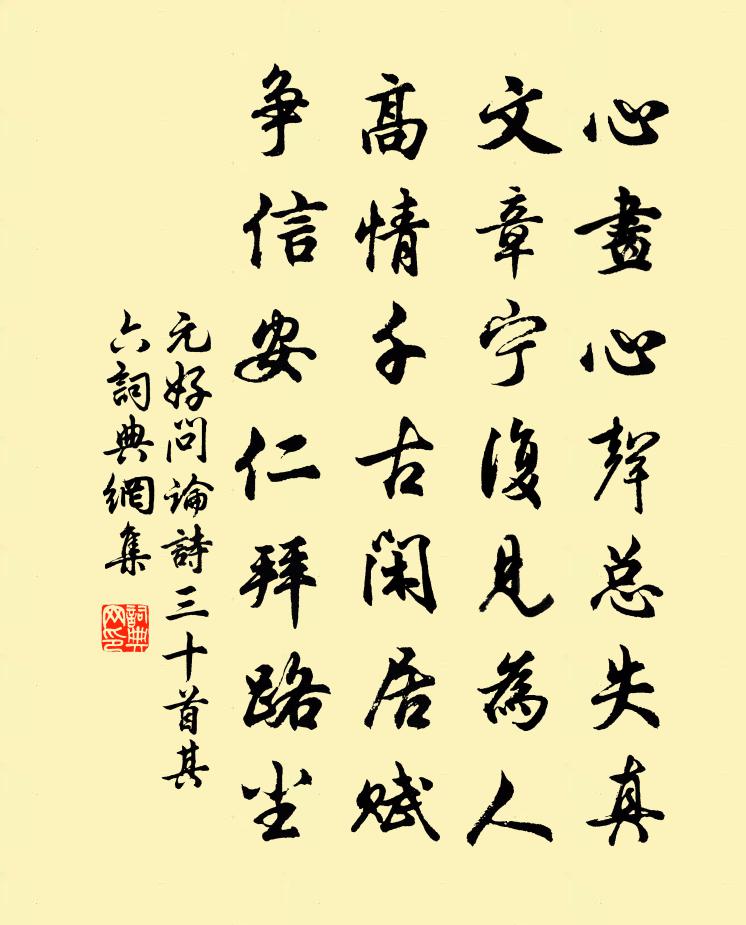 心畫心聲总失真
文章宁復見為人
高情千古閑居賦
争信安仁拜路尘
元好问論詩三十首其
六詞典網集
詞典
网印